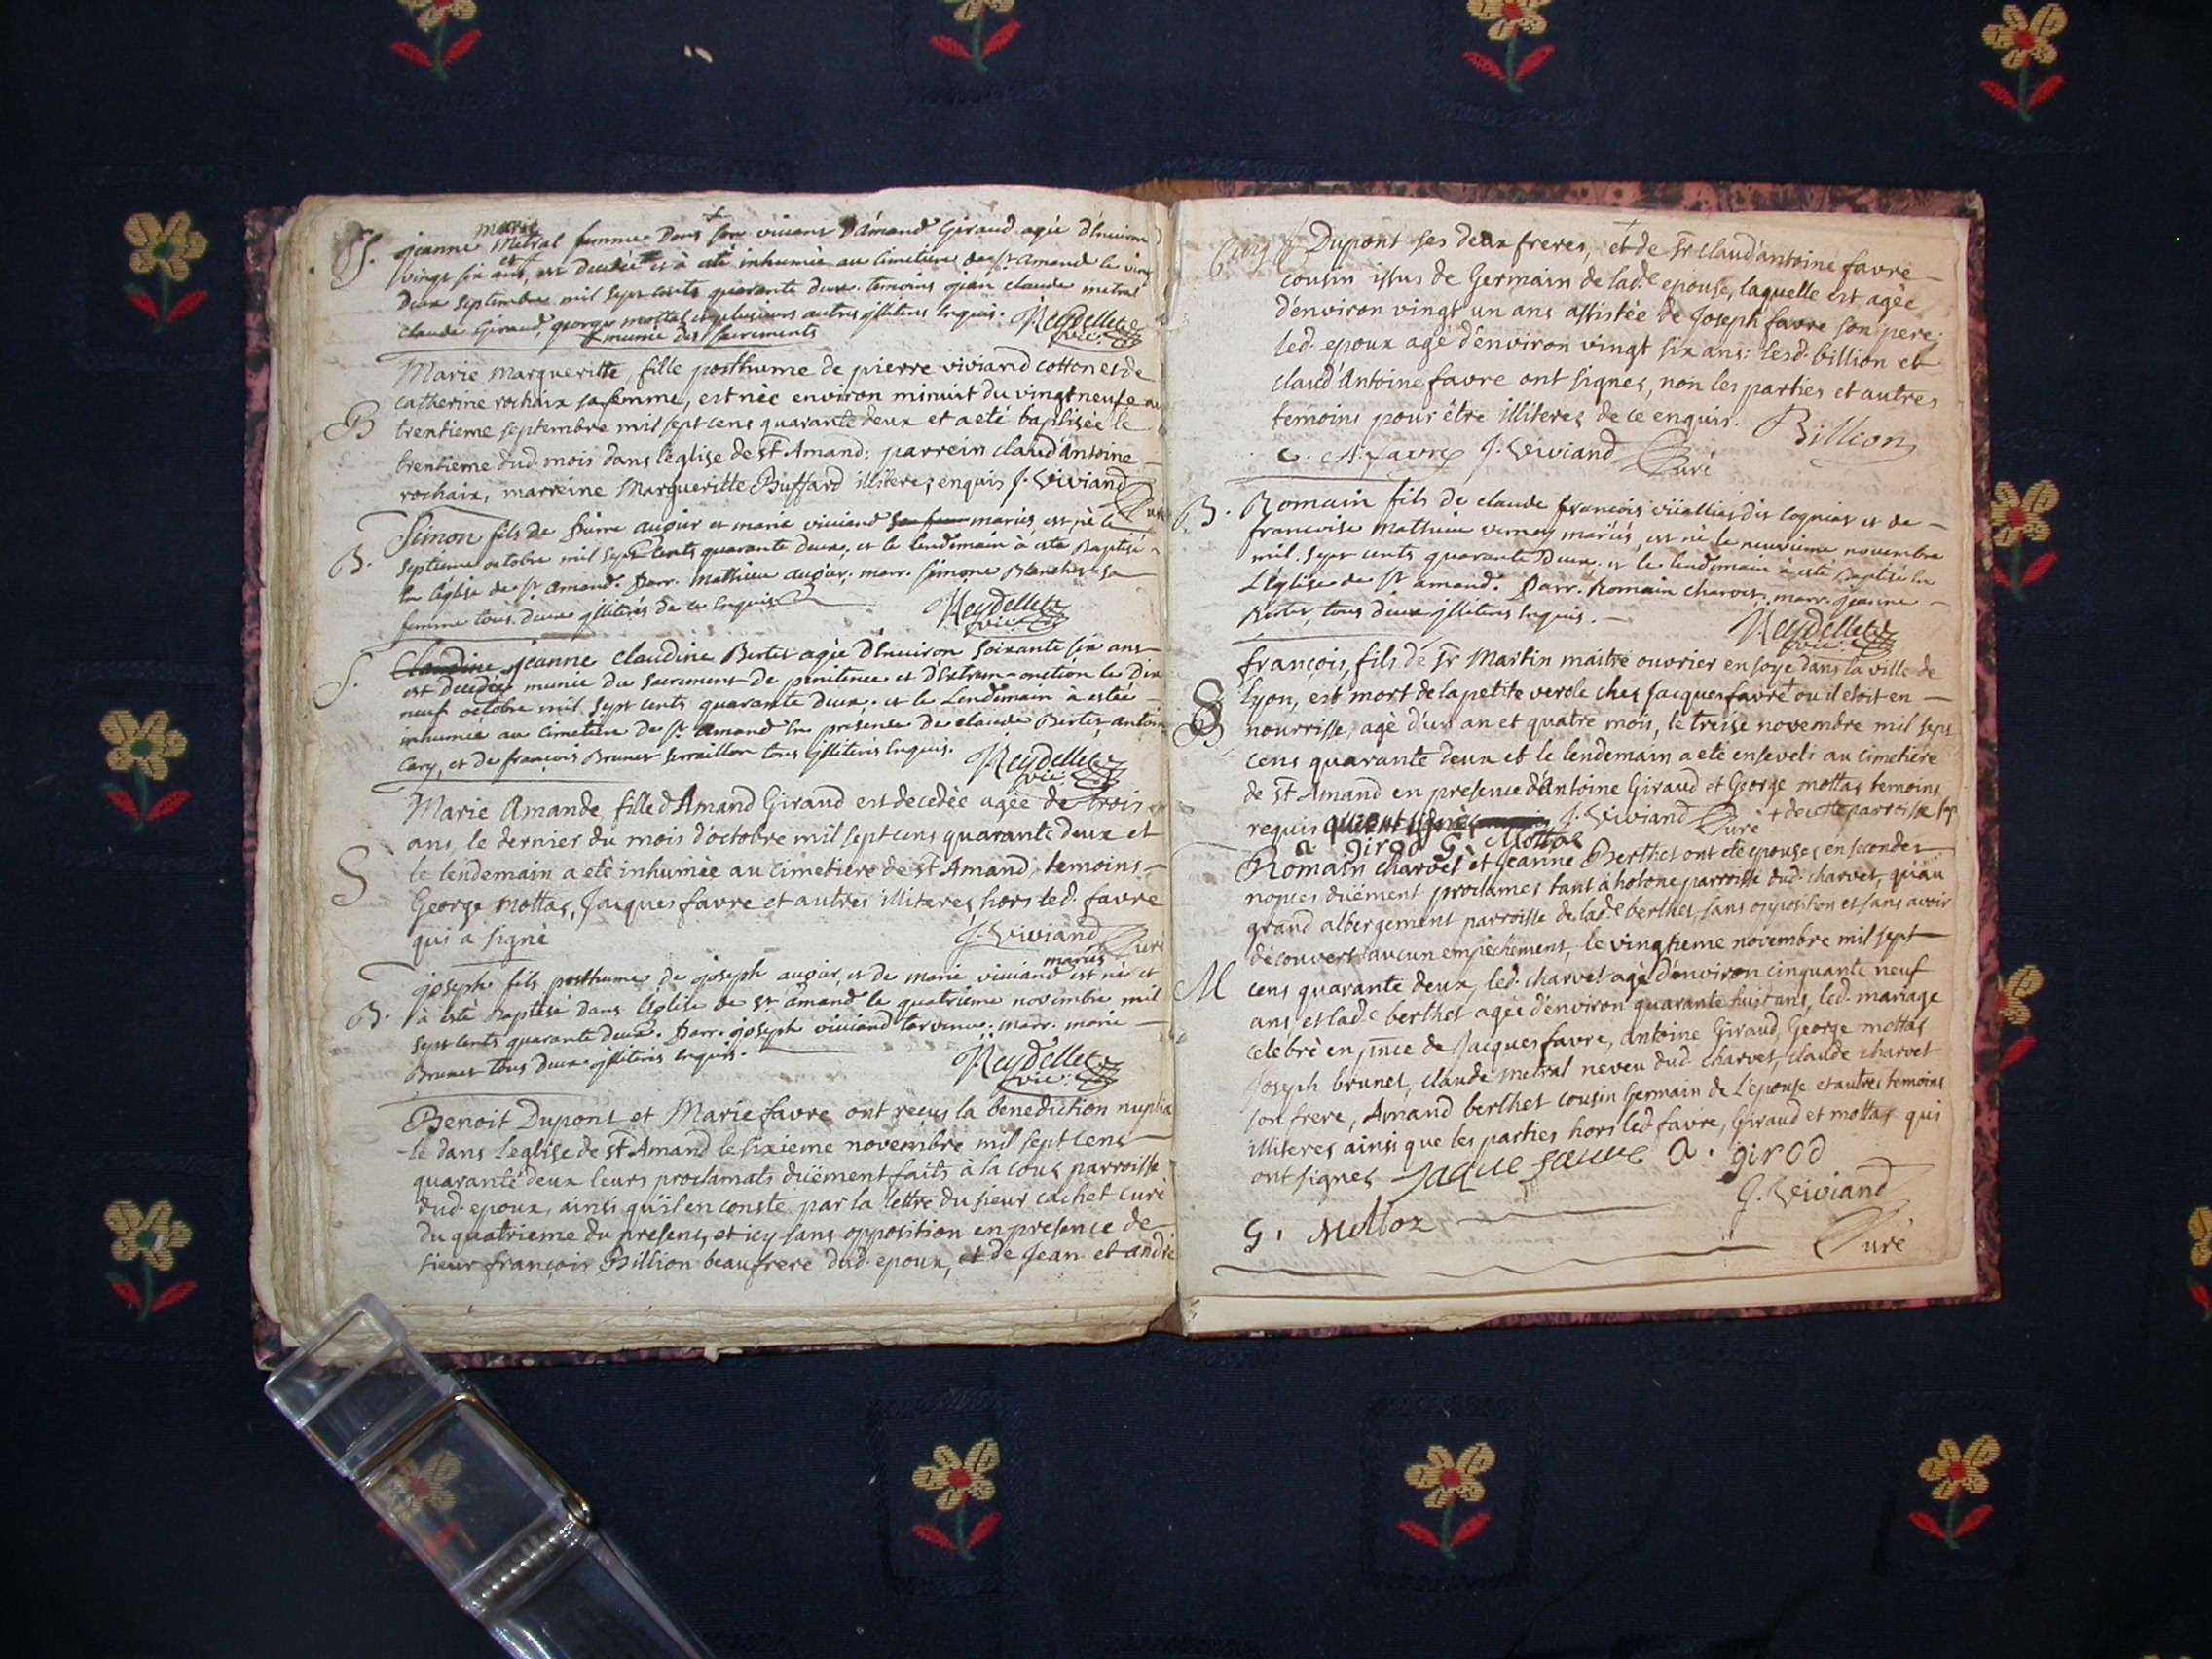 marie
S. jeanne metral femme dans son vivant d'amand Giraud agée d'environ
vingt six ans, est decedée et à eté inhumée au cimetiere de st amand le vingt
deux septembre mil sept cents quarante deux. temoins jean claude metral
claude Giraud, george mottas et plusieurs autres jlliteres enquis. Reydellet
munie des sacrements vic:
Marie margueritte, fille posthume de pierre viviand cotton et de
catherine rochaix sa femme, est née environ minuit du vingt neuf au
B trentieme septembre mil sept cens quarante deux et a eté baptisée le
trentieme dud. mois dans l'eglise de st Amand: parrein claud'antoine
rochaix, marreine Margueritte Buffard illiteres enquis J. Viviand
Curé
Simon fils de pierre augier et marie viviand mariés, est né le
B. septieme octobre mil sept cents quarante deux, et le lendemain à esté Baptisé
en l'église de st amand. Parr. mathieu augier, marr. simone Blanchet sa
femme tous deux jlliterés de ce enquis. Reydellet
vic:
S. Claudine jeanne claudine Bertet agée d'environ soixante six ans
est decedée munie du sacrement de penitence et d'extrem-onction le dix
neuf octobre mil sept cents quarante deux, et le lendemain à estée
inhumée au cimetiere de st amand en presence de claude Bertet, antoine
Cary, et de françois Brunet serraillon tous jlliterés enquis. Reydellet
vic:
Marie Amande fille d'Amand Giraud est decedée agée de trois
ans, le dernier du mois d'octobre mil sept cens quarante deux et
S le lendemain a eté inhumée au cimetiere de st Amand, temoins
George mottas, Jacques favre et autres illiteres hors led. favre
qui a signé J. Viviand Curé
mariés
joseph fils posthume de joseph augier, et de marie viviand est né et
B. à esté Baptisé dans l'église de st amand le quatrieme novembre mil
sept cents quarante deux. Parr. joseph viviand tarvenu; marr. marie
Brunet tous deux jlliterés enquis. Reydellet
vic:
Benoit Dupont et Marie favre ont reçus la benediction nuptia
le dans l'eglise de st Amand le sixieme novembre mil sept cens
quarante deux leurs proclamats düement faits à la coux parroisse
dud. epoux, ainsi qu'il en conste par la lettre du sieur cachet curé
du quatrieme du present, et icy sans opposition en presence de
sieur françois Billion beaufrere dud. epoux, et de Jean et andré
Dupont ses deux freres, et de sr claud'antoine favre
cousin issus de Germain de lad.e epouse, laquelle est agée
d'environ vingt un ans assistée de Joseph favre son pere;
led. epoux agé d'environ vingt six ans: lesd. billion et
claud'Antoine favre ont signes, non les parties et autres
temoins pour être illiteres de ce enquis. Billion
C. A. favre J. Viviand Curé
B. Romain fils de claude francois dit cognias et de
francoise mathieu vernay mariés, est né le neuvieme novembre
mil sept cents quarante deux, et le lendemain à esté baptisé en
L'église de st amand. Parr. Romain charvet, marr. jeanne
Bertet, tous deux jlliteres enquis. Reydellet
vic:
françois, fils de sr Martin maitre ouvrier en soye dans la ville de
S Lyon, est mort de la petite verole ches Jacques favre + ou il etoit en
nourrisse, agé d'un an et quatre mois, le treise novembre mil sept
cens quarante deux et le lendemain a eté enseveli au cimetiere
de st Amand en presence d'Antoine Giraud et George mottas temoins
requis qui ont signé J. Viviand Curé + de cette parroisse
a girod G. Mottoz
Romain charvet et Jeanne Berthet ont eté epouses en secondes
nopces düement proclames tant à hotone parroisse dud. charvet, qu'au
grand albergement parroisse de lad.e berthet, sans opposition et sans avoir
découvert aucun empechement, le vingtieme novembre mil sept
M cens quarante deux, led. charvet agé d'environ cinquante neuf
ans, et lad.e berthet agée d'environ quarante huit ans, led. mariage
celebré en pnce de Jacques favre, antoine Giraud, George mottas
Joseph brunet, claude metral neveu dud. charvet, claude charvet
son frere, Amand berthet cousin Germain de l'epouse et autres temoins
illiteres ainsi que les parties hors led. favre, Giraud et mottas qui
ont signes Jaque favre a. girod
J. Viviand
G. Mottoz
Curé